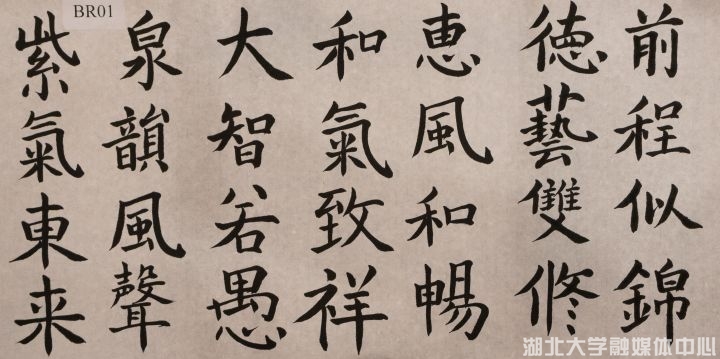 BR01
前程似錦
徳藝雙修
恵風和暢
和氣致祥
大智若愚
泉韻風聲
紫氣東来
湖北大学融媒体中心